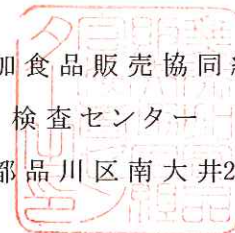 加食品販売協同
検査センター
都品川区南大井2